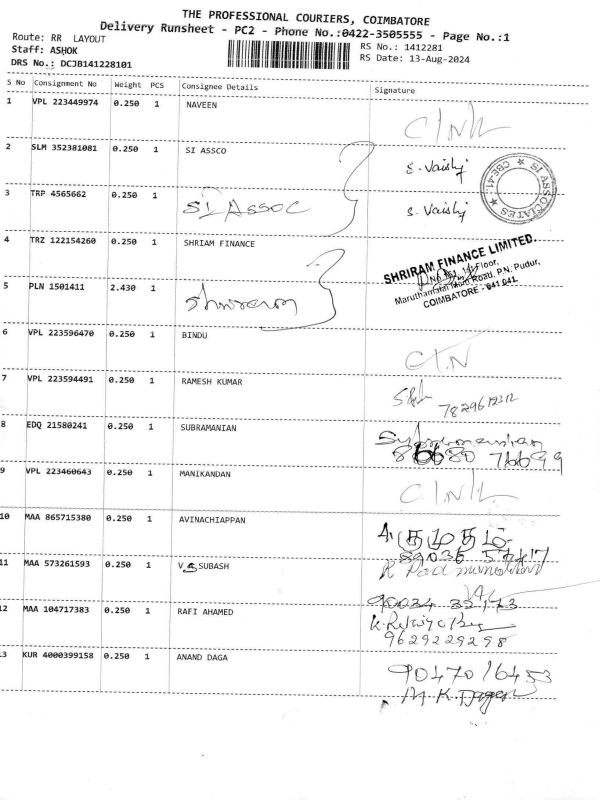 THE PROFESSIONAL COURIERS, COIMBATORE
Delivery Runsheet - PC2 - Phone No.:0422-3505555 - Page No.:1
Route: RR LAYOUT
Staff: ASHOK
DRS No.: DCJB141228101
RS No.: 1412281
RS Date: 13-Aug-2024
S No Consignment No Weight PCS Consignee Details Signature
1 VPL 223449974 0.250 1 NAVEEN
2 SLM 352381081 0.250 1 SI ASSCO S. Vaishj
SI ASSOCIATES ★ CBE-41. ★
3 TRP 4565662 0.250 1 SI ASSOC S. Vaishj
4 TRZ 122154260 0.250 1 SHRIAM FINANCE
SHRIRAM FINANCE LIMITED.
Floor,
Road, P.N. Pudur,
COIMBATORE - 641 041.
5 PLN 1501411 2.430 1 Shriram
6 VPL 223596470 0.250 1 BINDU
7 VPL 223594491 0.250 1 RAMESH KUMAR
8 EDQ 21580241 0.250 1 SUBRAMANIAN Subramanian
9 VPL 223460643 0.250 1 MANIKANDAN
10 MAA 865715380 0.250 1 AVINACHIAPPAN
11 MAA 573261593 0.250 1 SUBASH
12 MAA 104717383 0.250 1 RAFI AHAMED
9629229298
13 KUR 4000399158 0.250 1 ANAND DAGA 9047016453